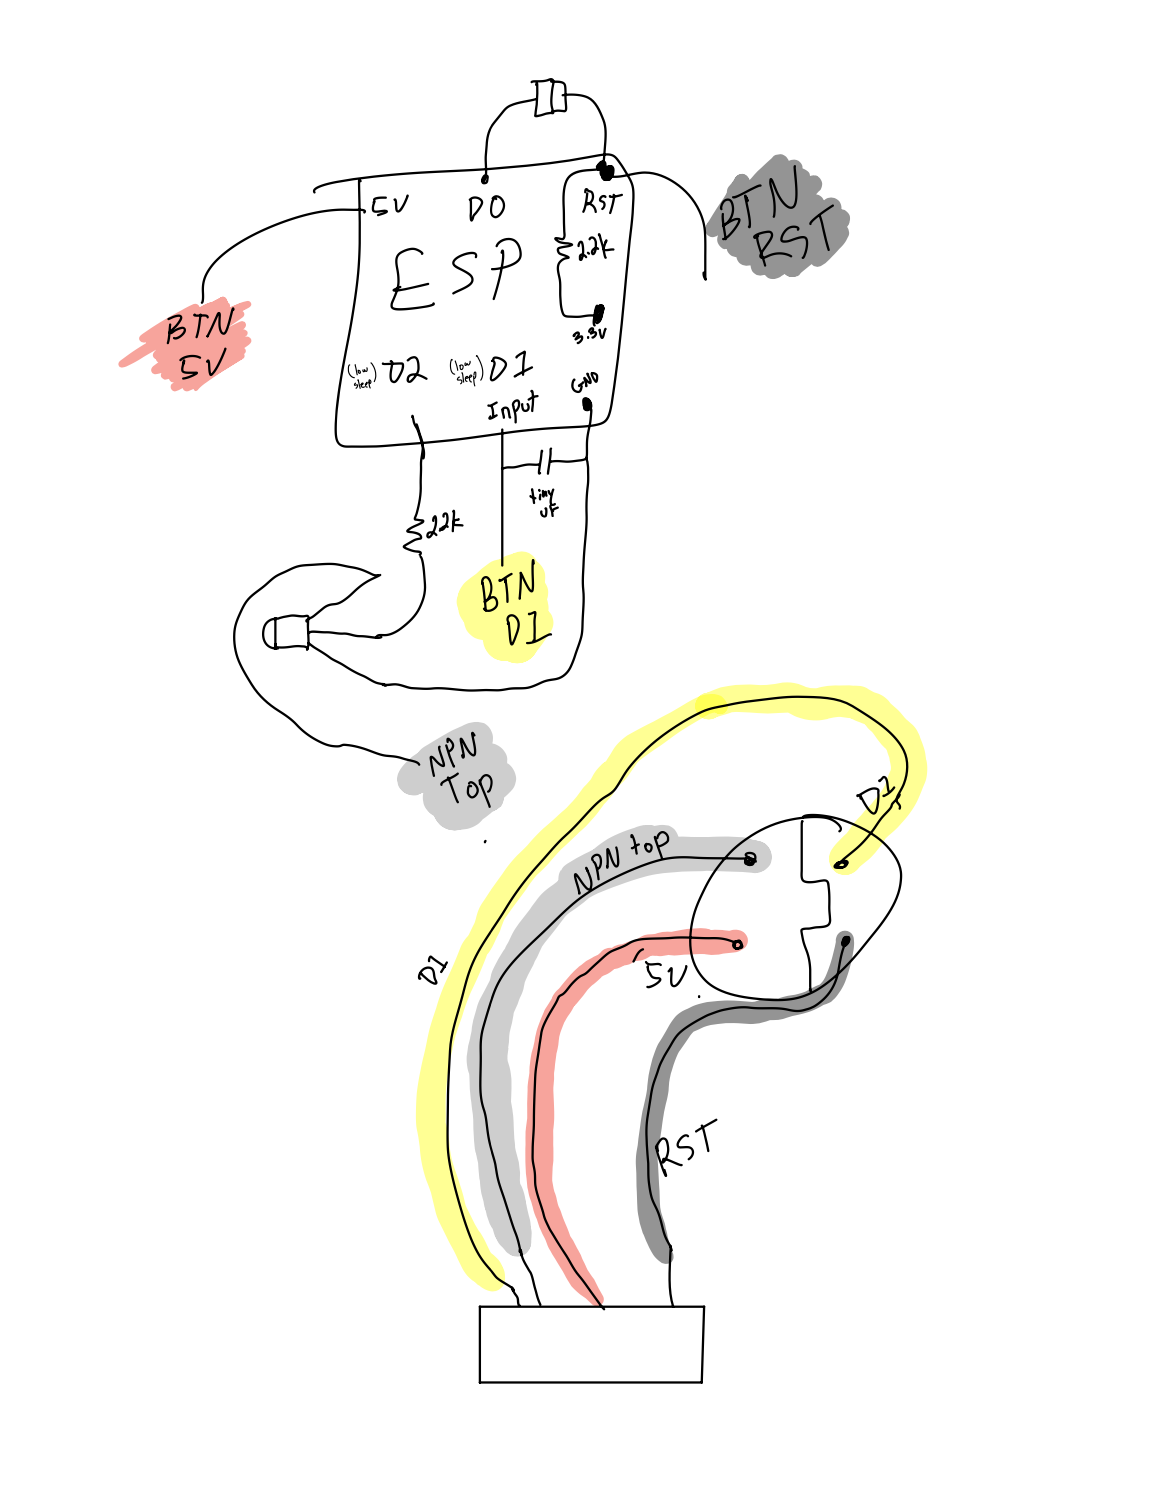 5V
DO
RST
BTN
RST
ESP
2.2k
3.3V
BTN
5V
(low
sleep)
D2
(low
sleep)
D1
Input
GND
22k
tiny
uF
BTN
D1
NPN
Top
D1
NPN top
D1
5V
RST